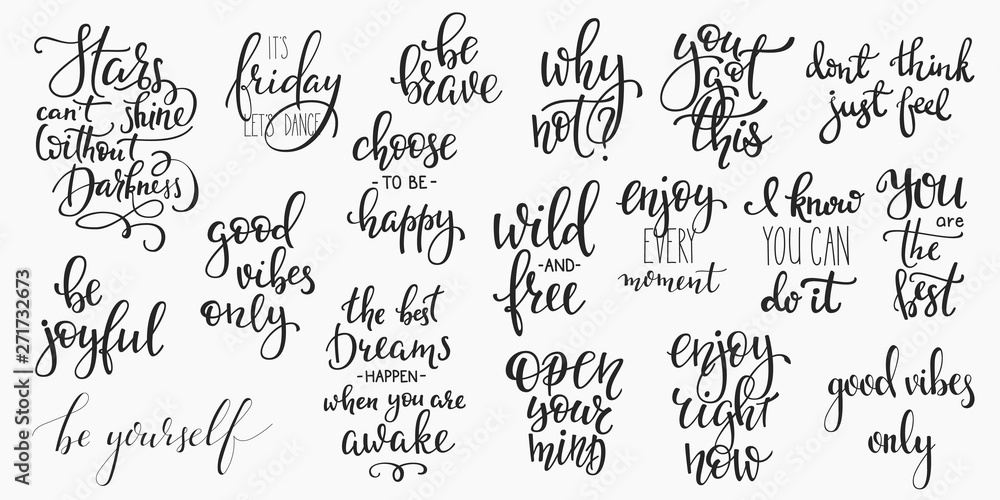 Stars
can't shine
without
Darkness
IT'S
friday
LET'S DANCE
be
brave
why
not?
you
got
this
dont think
just feel
choose
- TO BE -
happy
good
vibes
only
wild
-AND-
free
enjoy
EVERY
moment
I know
YOU CAN
do it
you
are
the
best
be
joyful
the best
Dreams
- HAPPEN -
when you are
awake
open
your
mind
enjoy
right
now
good vibes
only
be yourself
Adobe Stock | #271732673